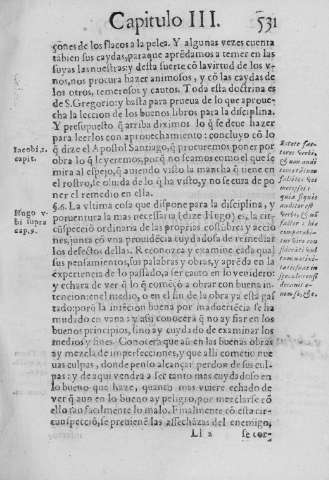 Capitulo III. 531
çones de los flacos a la pelea. Y algunas vezes cuenta
tãbien sus caydas, para que aprẽdamos a temer en las
suyas las nuestras: y desta suerte cõ la virtud de los v-
nos, nos procura hazer animosos, y cõ las caydas de
los otros, temerosos y cautos. Toda esta doctrina es
de S. Gregorio: y basta para prueua de lo que aproue-
cha la leccion de los buenos libros para la disciplina.
Y presupuesto q̃ arriba diximos lo q̃ se deue hazer
para leerlos con aprouechamiento: concluyo cõ lo
q̃ dize el Apostol Santiago, q̃ procuremos poner por
obra lo q̃ leyeremos, porq̃ no seamos como el que se
mira al espejo, q̃ auiendo visto la mancha q̃ tiene en
el rostro, se oluida de lo q̃ ha visto, y no se cura de po
ner el remedio en ella.
Iacobi. 1.
capit.
Estote fac-
tores verbi,
§. 6. La vltima cosa que dispone para la disciplina, y
por ventura la mas necessaria (dize Hugo) es, la cir-
cũspecciõ ordinaria de las proprias costũbres y accio
nes, junta cõ vna prouidẽcia cuydadosa de remediar
los defectos dellas. Reconozca y examine cada qual
sus pensamientos, sus palabras y obras, y aprẽda en la
experiencia de lo passado, a ser cauto en lo venidero:
y echara de ver q̃ lo q̃ comẽço a obrar con buena in-
tencion: en el medio, o en el fin de la obra ya està gas
tado: porq̃ la intẽcion buena por inaduertẽcia se ha
mudado en vana: y assi conocerà q̃ no ay fiar en los
buenos principios, sino ay cuydado de examinar los
medios y fines. Conocerà que assi en las buenas obras
ay mezcla de imperfecciones, y que alli cometio nue
uas culpas, donde penso alcançar perdon de sus cul-
pas: y de aqui vendrà a ser tanto mas cuydadoso en
lo bueno que haze, quanto mas vuiere echado de
ver q̃ aun en lo bueno ay peligro, por mezclarse cõ
ello tan facilmente lo malo. Finalmente cõ esta cir-
cunspecciõ, se preuienẽ las assechãzas del enemigo,
Hugo v-
bi supra
cap. 9.
Ll 2 se cor-